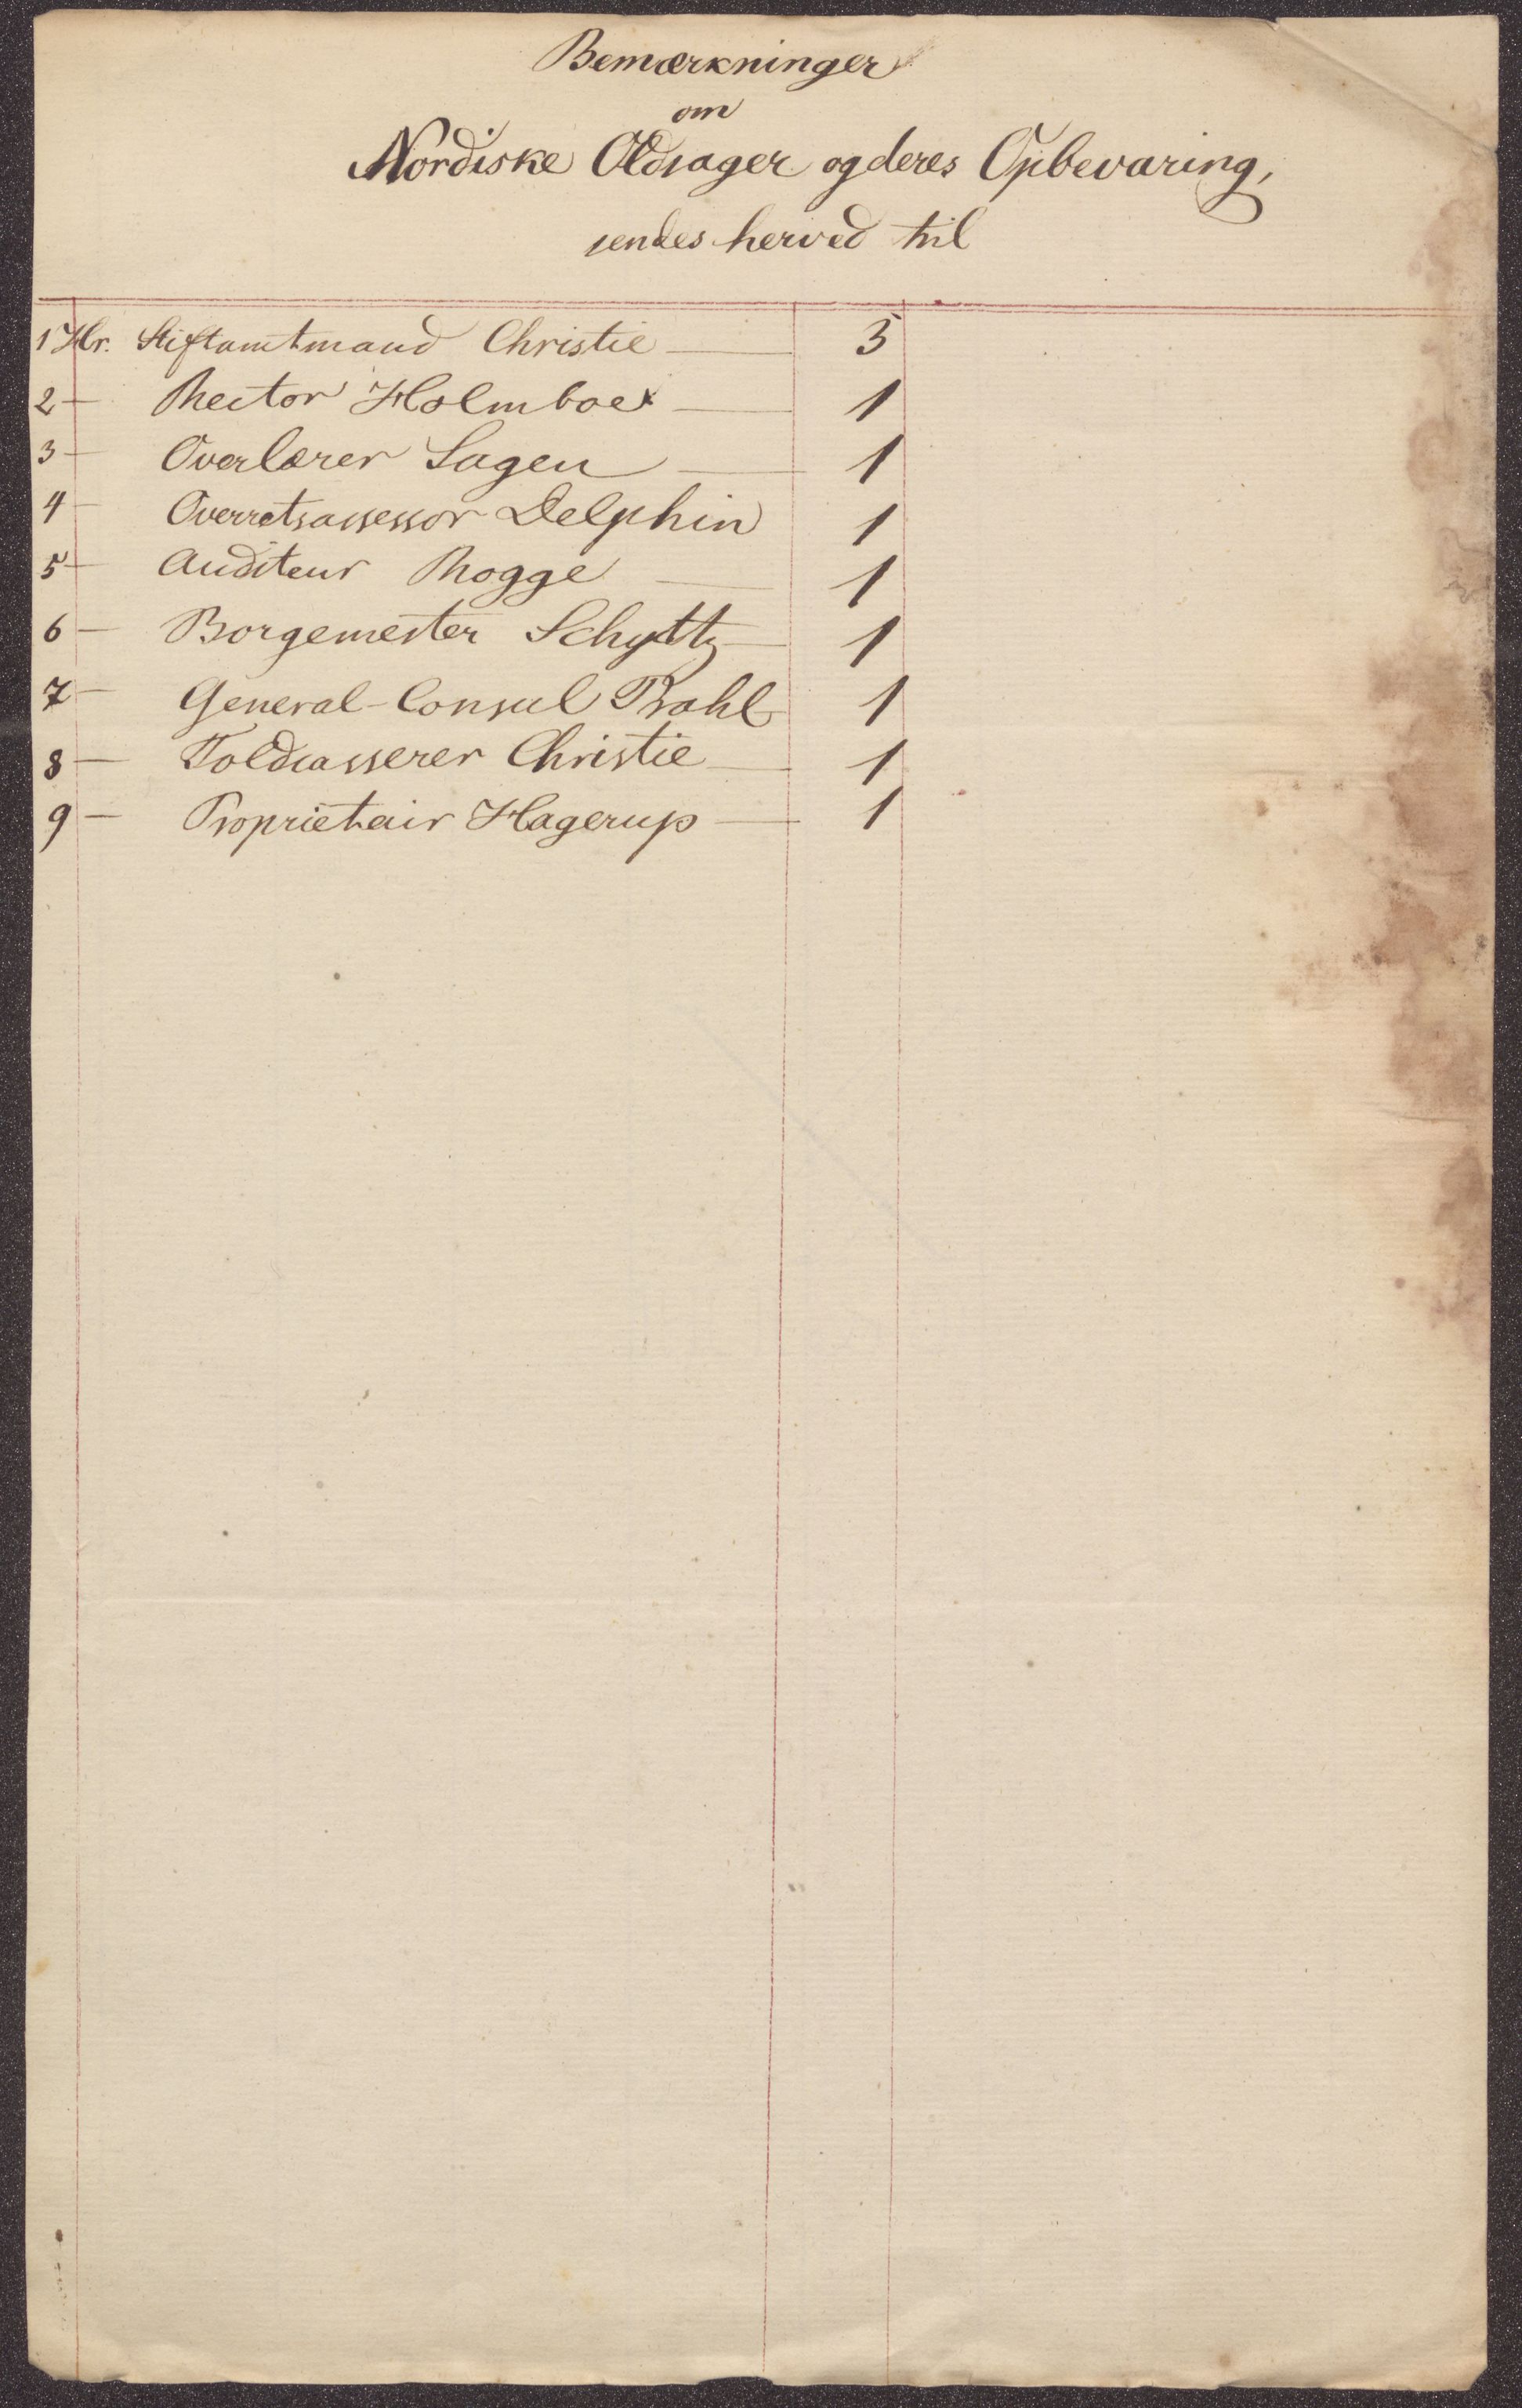 Bemærkninger
om
Nordiske Oldsager og deres Opbevaring,
sendes herved til
1 Hr. Stiftamtmand Christie — 3
2 — Rector Holmboe — 1
3 — Overlærer Sagen — 1
4 — Overretsassessor Delphin 1
5 — Auditeur Rogge — 1
6 — Borgemester Schydtz — 1
7 — General-Consul Prahl 1
8 — Toldcasserer Christie — 1
9 — Proprietair Hagerup — 1